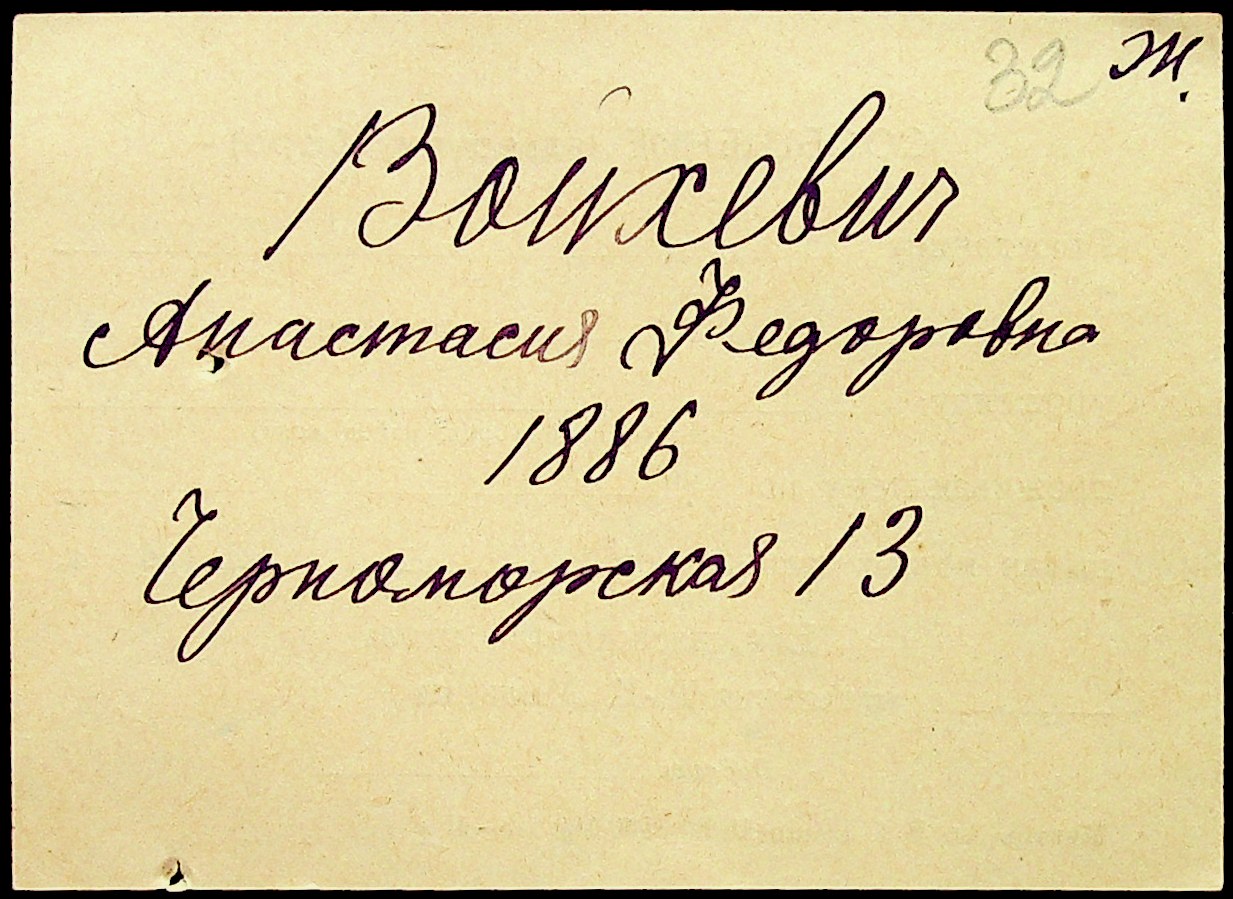 32 ж.
Войхевич
Анастасия Федоровна
1886
Черноморская 13